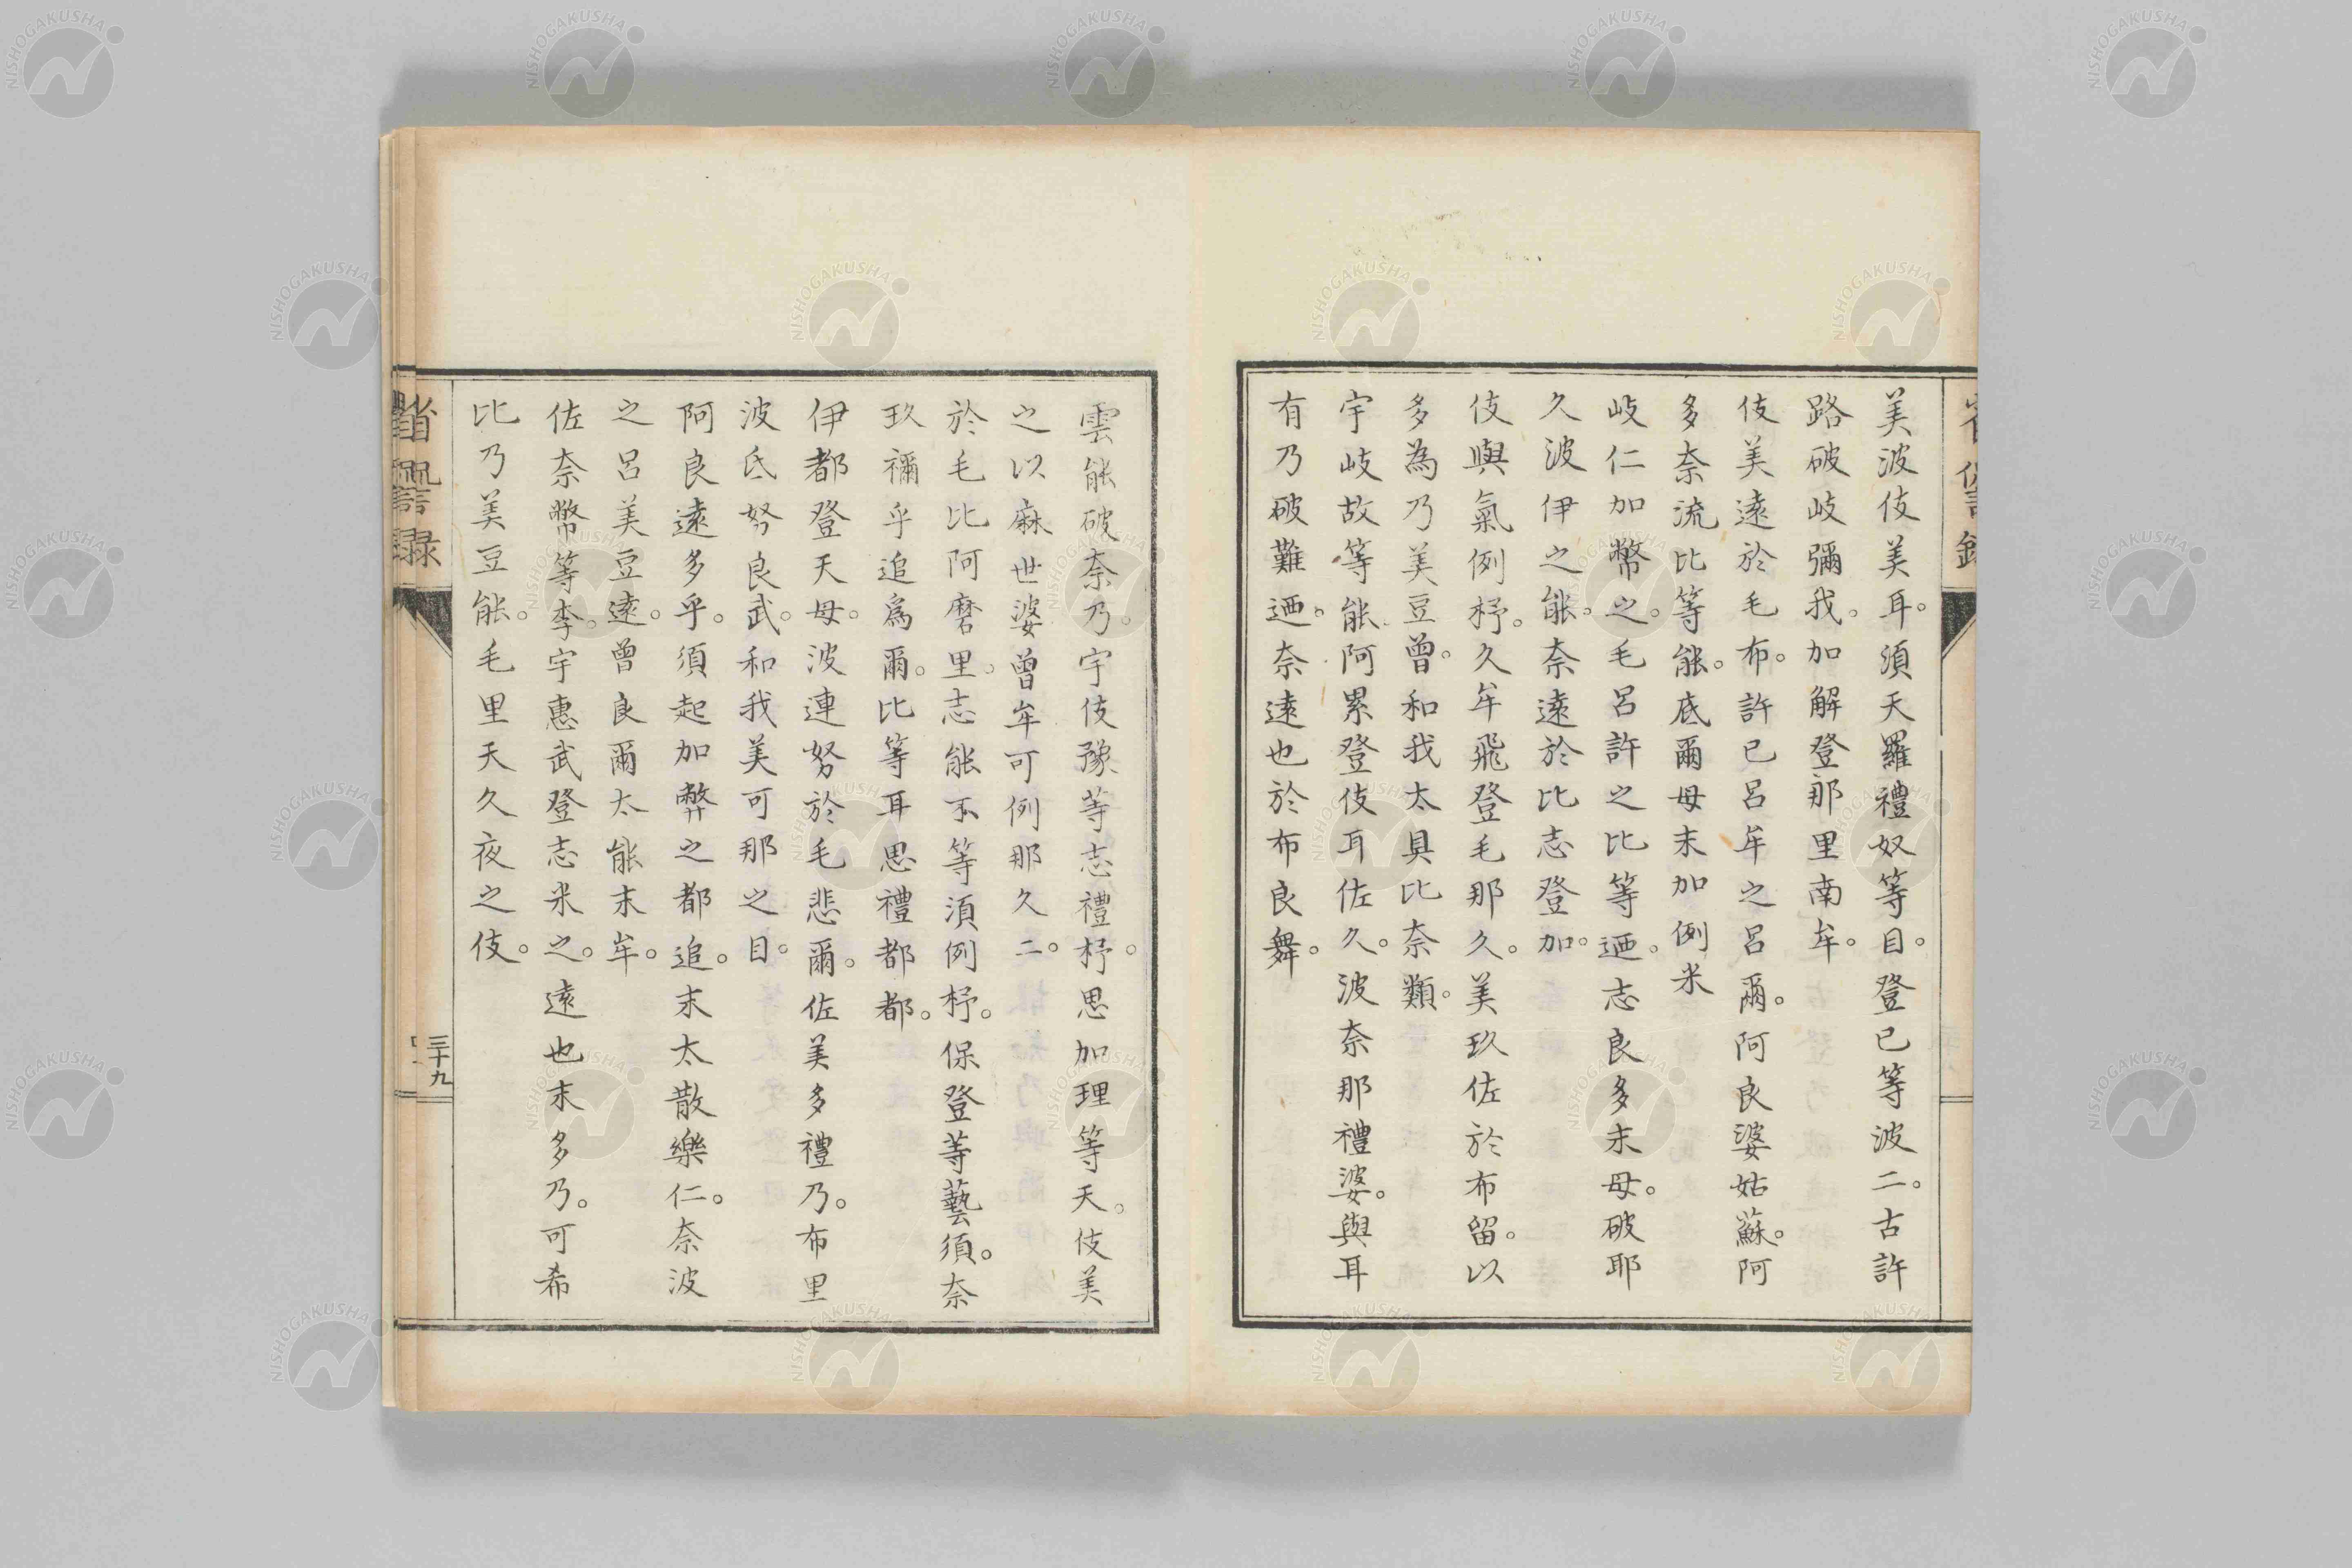 美波伎美耳。須天羅禮奴等目。登已等波二。古許
路破岐彌我。加解登那里南牟。
伎美遠於毛布。許已呂牟之呂爾。阿良婆姑蘇。阿
多奈流比等能。底爾母末加例米
岐仁加幣之。毛呂許之比等迺。志良多末母。破耶
久波伊之能。奈遠於比志登加。
伎與氣例杼。久牟飛登毛那久。美玖佐於布留。以
多為乃美豆曾。和我太具比奈類。
宇岐故等能。阿累登伎耳佐久。波奈那禮婆。與耳
有乃破難迺。奈遠也於布良舞。
雲能破奈乃。宇伎豫等志禮杼。思加理等天。伎美
之以麻世婆曾牟可例那久二。
於毛比阿磨里。志能不等須例杼。保登等藝須。奈
玖禰乎追爲爾。比等耳思禮都都。
伊都登天母。波連努於毛悲爾。佐美多禮乃。布里
波氐努良武。和我美可那之目。
阿良遠多乎。須起加弊之都追。末太散樂仁。奈波
之呂美豆遠。曾良爾太能末牟。
佐奈幣等李。宇惠武登志米之。遠也末多乃。可希
比乃美豆能。毛里天久夜之伎。
省諐録
三十九
NISHOGAKUSHA